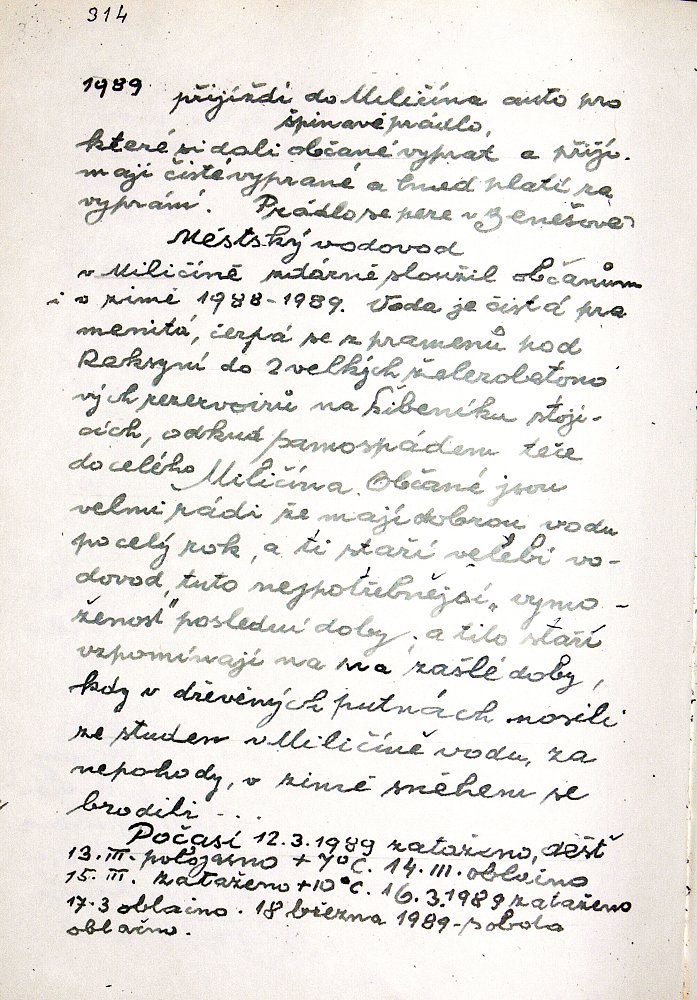 314
1989 přijíždí do Miličína auto pro
špinavé prádlo,
které si dali občané vyprat a přijí-
mají čisté vyprané a hned platí za
vyprání. Prádlo se pere v Benešově
Městský vodovod
v Miličíně zdárně sloužil občanům
i v zimě 1988-1989. Voda je čistá pra
menitá, čerpá se z pramenů pod
do 2 velkých železobetono
vých rezervoirů na Šibeníku stojí-
cích, odkud samospádem teče
do celého Miličína. Občané jsou
velmi rádi že mají dobrou vodu
po celý rok, a ti staří velebí vo-
dovod, tuto nejpotřebnější „vymo-
ženost" poslední doby; a tito staří
vzpomínají na na zašlé doby,
kdy v dřevěných putnách nosili
ze studen v Miličíně vodu, za
nepohody, v zimě sněhem se
brodili ...
Počasí 12.3.1989 zataženo, déšť
13. III. polojasno + 7°C. 14. III. oblačno
15. III. zataženo +10°C. 16.3.1989 zataženo
17.3 oblačno. 18 března 1989-sobota
oblačno.